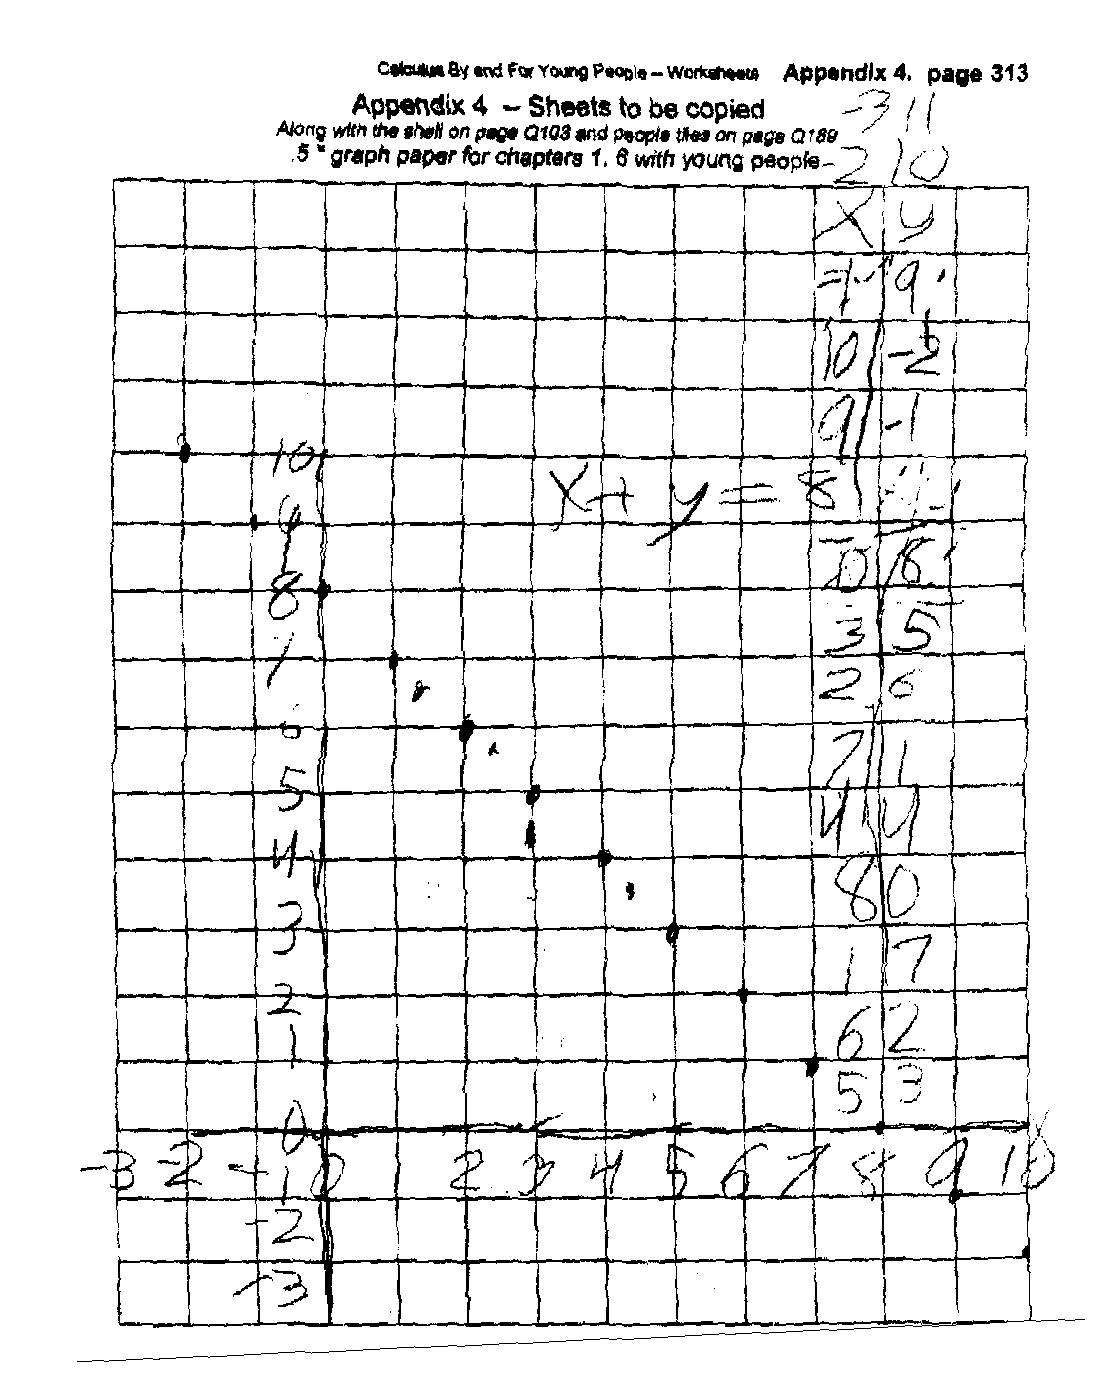 Calculus By and For Young People – Worksheets Appendix 4. page 313
Appendix 4 – Sheets to be copied
Along with the shell on page Q103 and people tiles on page Q189
.5 " graph paper for chapters 1, 6 with young people
-3 11
-2 10
x y
-1 9
10 -2
9 -1
10
x + y = 8
9
0 8
8
3 5
7
2 6
6
7 1
5
4 4
4
8 0
3
1 7
2
6 2
1
5 3
0
x
-3 -2 -1 0 1 2 3 4 5 6 7 8 9 10
-2
-3